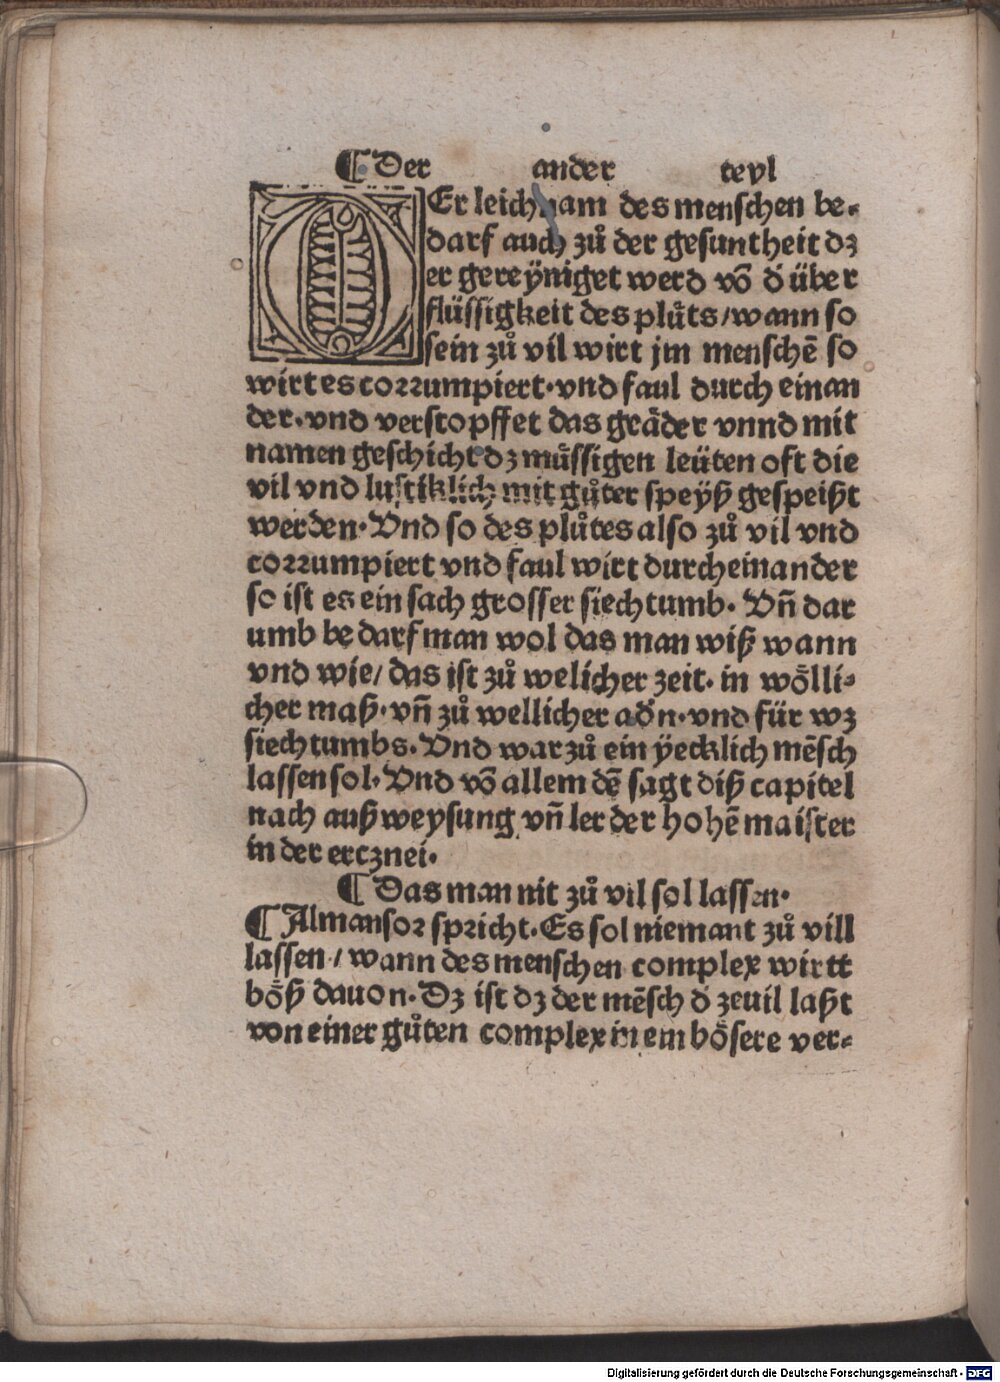 ¶ Der ander teyl
DEr leichnam des menschen be-
darf auch zů der gesuntheit dz
er gereÿniget werd võ d̕ über
flüssigkeit des plůts/wann so
sein zů vil wirt jm menschē so
wirt es corrumpiert·vnd faul durch einan
der·vnd verstopffet das gräder vnnd mit
namen geschicht dz müssigen leüten oft die
vil vnd lustiklich mit gůter speÿß gespeißt
werden·Vnd so des plůtes also zů vil vnd
corrumpiert vnd faul wirt durcheinander
so ist es ein sach grosser siechtumb· Vn̄ dar
umb bedarf man wol das man wiß wann
vnd wie/ das ist zů welicher zeit· in wölli-
cher maß·vn̄ zů wellicher ad̕n·vnd für wz
siechtumbs·Vnd warzů ein ÿecklich mēsch
lassen sol·Vnd võ allem dē sagt diß capitel
nach außweysung vn̄ ler der hohē maister
in der ercznei·
¶ Das man nit zů vil sol lassen·
¶ Almansor spricht·Es sol niemant zů vill
lassen/wann des menschen complex wirtt
böß dauon·Dz ist dz der mēsch d̕ zeuil laßt
von einer gůten complex in ein bösere ver-
Digitalisierung gefördert durch die Deutsche Forschungsgemeinschaft - DFG